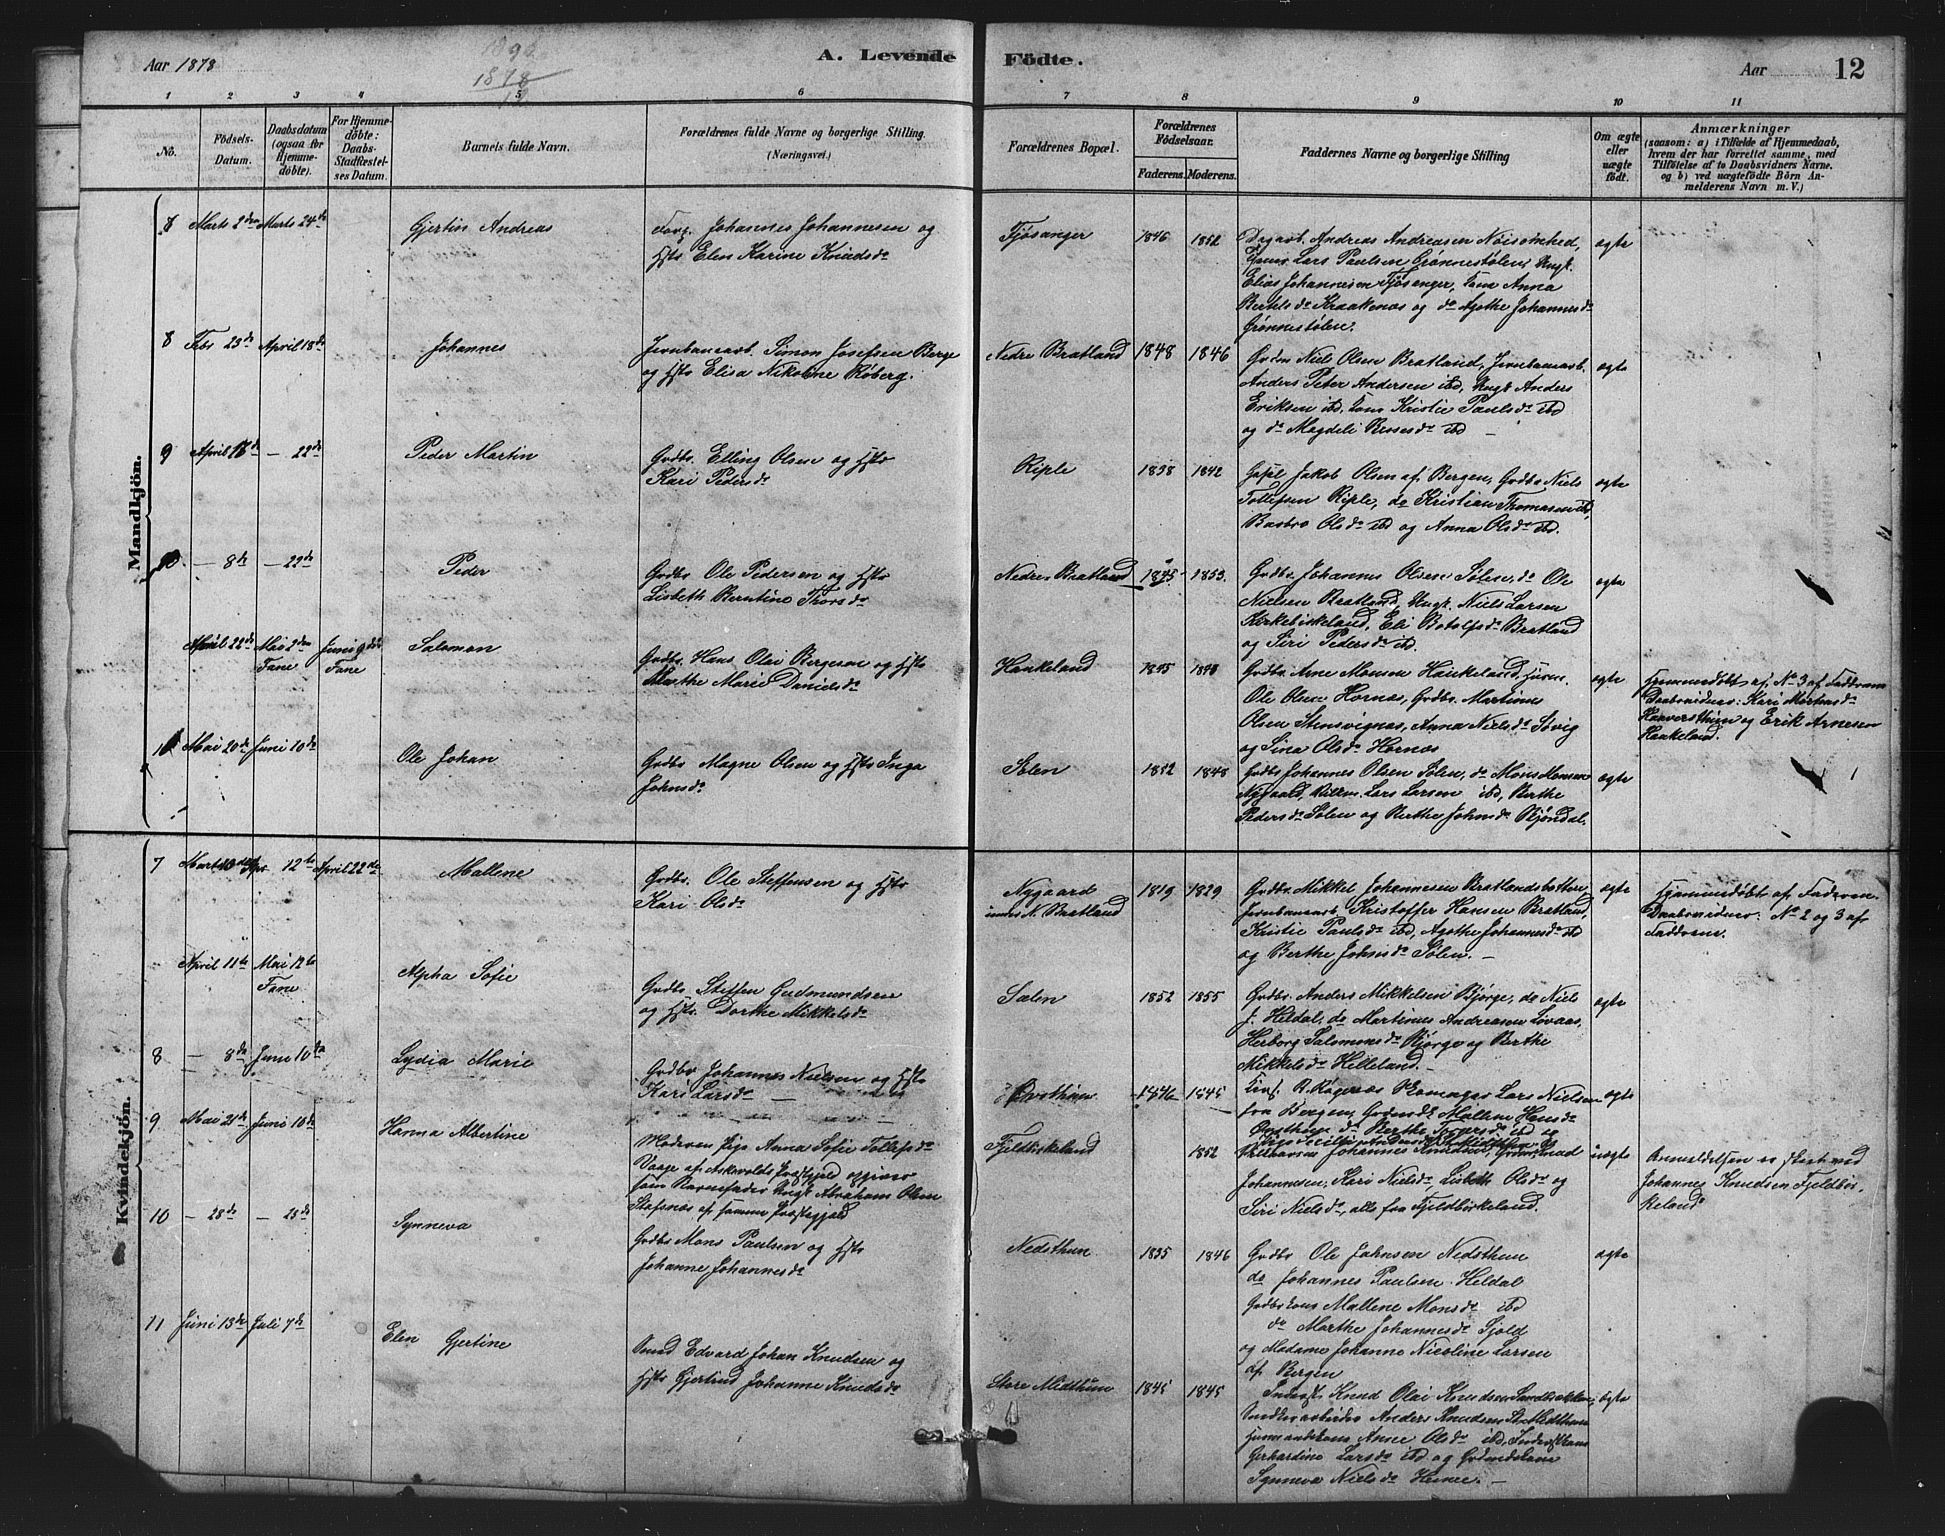 Aar 1878
1878
A. Levende Födte.
Aar 12
1 2 3 4 5 6 7 8 9 10 11
No.
Födsels-Datum.
Daabsdatum (ogsaa for Hjemme-döbte).
For Hjemme-döbte: Daabs-Stadfæstel-ses Datum.
Barnets fulde Navn.
Forældrenes fulde Navne og borgerlige Stilling. (Næringsvei.)
Forældrenes Bopæl.
Forældrenes Födselsaar.
Faderens. Moderens.
Faddernes Navne og borgerlige Stilling
Om ægte eller uægte födt.
Anmærkninger
(saasom: a) i Tilfælde af Hjemmedaab,
hvem der har forrettet samme, med
Tilföielse af to Daabsvidners Navne.
og b) ved uægtefödte Börn An-
melderens Navn m. V.)
Mandkjön.
Marts 2den Marts 24de Gjertin Andreas
Johannes Johannesen og
Hstr Elen Karine Knudsdr
Fjøsanger 1846 1852
Dagarb. Andreas Andreasen Nøisomhed,
Lars Paulsen Grønnestølen, Ungk.
Elias Johannesen Fjøsanger, Kone Anna
Bertelsdr Kraakenæs og do Agathe Johannesdr
Grønnestølen.
ægte
8 Febr 23de April 18de Johannes
Jernbanearb. Simon Josefsen Berge
og Hstr Elisa Nikoline Røberg.
Nedre Bratland 1848 1846
Grdm Niels Olsen Bratland, Jernbanearb.
Anders Peter Andersen ibd, Ungk Anders
Eriksen ibd, Kone Kristie Paulsdr ibd
og do Magdeli dr ibd
ægte
9 April — 22de Peder Martin
Grdbr. Elling Olsen og Hstr
Kari Pedersdr
Riple 1838 1842
Jakob Olsen af Bergen, Grdbr Niels
Tollefsen Riple, do Kristian Thomasen ibd,
Barbro Olsdr ibd og Anna Olsdr ibd.
ægte
10 — 8de — 22de Peder
Grdbr Ole Pedersen og Hstr
Lisbeth Berntine Thorsdr
Nedre Bratland 1845 1853.
Grdbr. Johannes Olsen Sølen, do Ole
Nielsen Bratland, Ungk. Niels Larsen
Kirkebirkeland, Eli Botolfsdr Bratland
og Siri Pedersdr ibd.
ægte
April 22de Mai 2den Fane Juni 9de Fane Salomon
Grdbr. Hans Olai Bergesen og Hstr
Marthe Marie Danielsdr
Haukeland 1845
Grdbr. Arne Monsen Haukeland,
Ole Olsen Hornæs, Grdbr. Martinus
Olsen Stensvignæs, Anna Nielsdr Søvig
og Sina Olsdr Hornæs
ægte
Hjemmedøbt af No 3 af Fadderne
Daabsvidner: Kari Mortensdr
og Erik Arnesen
Haukeland.
Mai 20de Juni 10de Ole Johan
Grdbr Magne Olsen og Hstr Inga
Johnsdr
Sølen 1852 1848
Grdbr Johannes Olsen Sølen, do Mons Monsen
Nygaard, Lars Larsen ibd, Berthe
Pedersdr Sølen og Berthe Johnsdr
ægte
Kvindekjön.
7 Marts 12te April 22de Mallene
Grdbr. Ole Steffensen og Hstr
Kari Olsdr
Nygaard
under N. Bratland
1819 1829
Grdbr. Mikkel Johannesen Bratlandsbotten,
Jernbanearb. Kristoffer Hansen Bratland,
Kristie Paulsdr ibd, Agathe Johannesdr ibd
og Berthe Johnsdr Sølen. —
ægte
Hjemmedøbt af Faderen.
Daabsvidner: No 2 og 3 af
Fadderne.
April 11te Mai 12te Fane Alpha Sofie
Grdbr. Steffen Gudmundsen
og Hstr. Dorthe Mikkelsdr
Sælen 1852 1855
Grdbr. Anders Mikkelsen Bjørge, do Niels
J. Heldal, do Martinus Andreasen Lvaas,
Herborg Salomonsdr Bjørge og Berthe
Mikkelsdr Helleland. —
ægte
8 — 8de Juni 10de Lydia Marie
Grdbr Johannes Nielsen og Hstr
Kari Larsdr —
1846 1845
Lars Nielsen
fra Bergen, Mallene Hansdr
Berthe ibd
ægte
9 Mai 21de Juni 10de Hanna Albertine
Moderen Pige Anna Sofie Tollefsdr
Vaage af Askevolds Præstegjeld opgiver
som Barnefader Ungk Abraham Olsen
Stafenæs af samme Præstegjeld
Fjeldbirkeland 1852
Johannes Knudsen,
Johannesen, Kari Nielsdr, Lisbeth Olsdr og
Siri Nielsdr, alle fra Fjeldbirkeland.
uægte
Anmeldelsen er skeet ved
Johannes Knudsen Fjeldbir-
keland
10 — 28de — 23de Synneva
Grdbr Mons Paulsen og Hstr
Johanne Johannesdr
Nedsthun 1835 1846
Grdbr Ole Johnsen Nedsthun
do Johannes Paulsen Heldal
Grdbrkone Mallene Monsdr ibd
do Marthe Johannesdr Sjold
og Madame Johanne Nicoline Larsen
af Bergen
ægte
11 Juni 13de Juli 7de Elen Gjertine
Smed Edvard Johan Knudsen og
Hstr Gjertrud Johanne Knudsdr
Store Midthun 1845 1845
Inderst. Knud Olai Knudsen Sandbrekken,
Snedkerarbeider Anders Knudsen St. Midthun
Huusmandskone Anne Olsdr ibd,
Gerhardine Larsdr ibd og
Synneva Nielsdr —
ægte